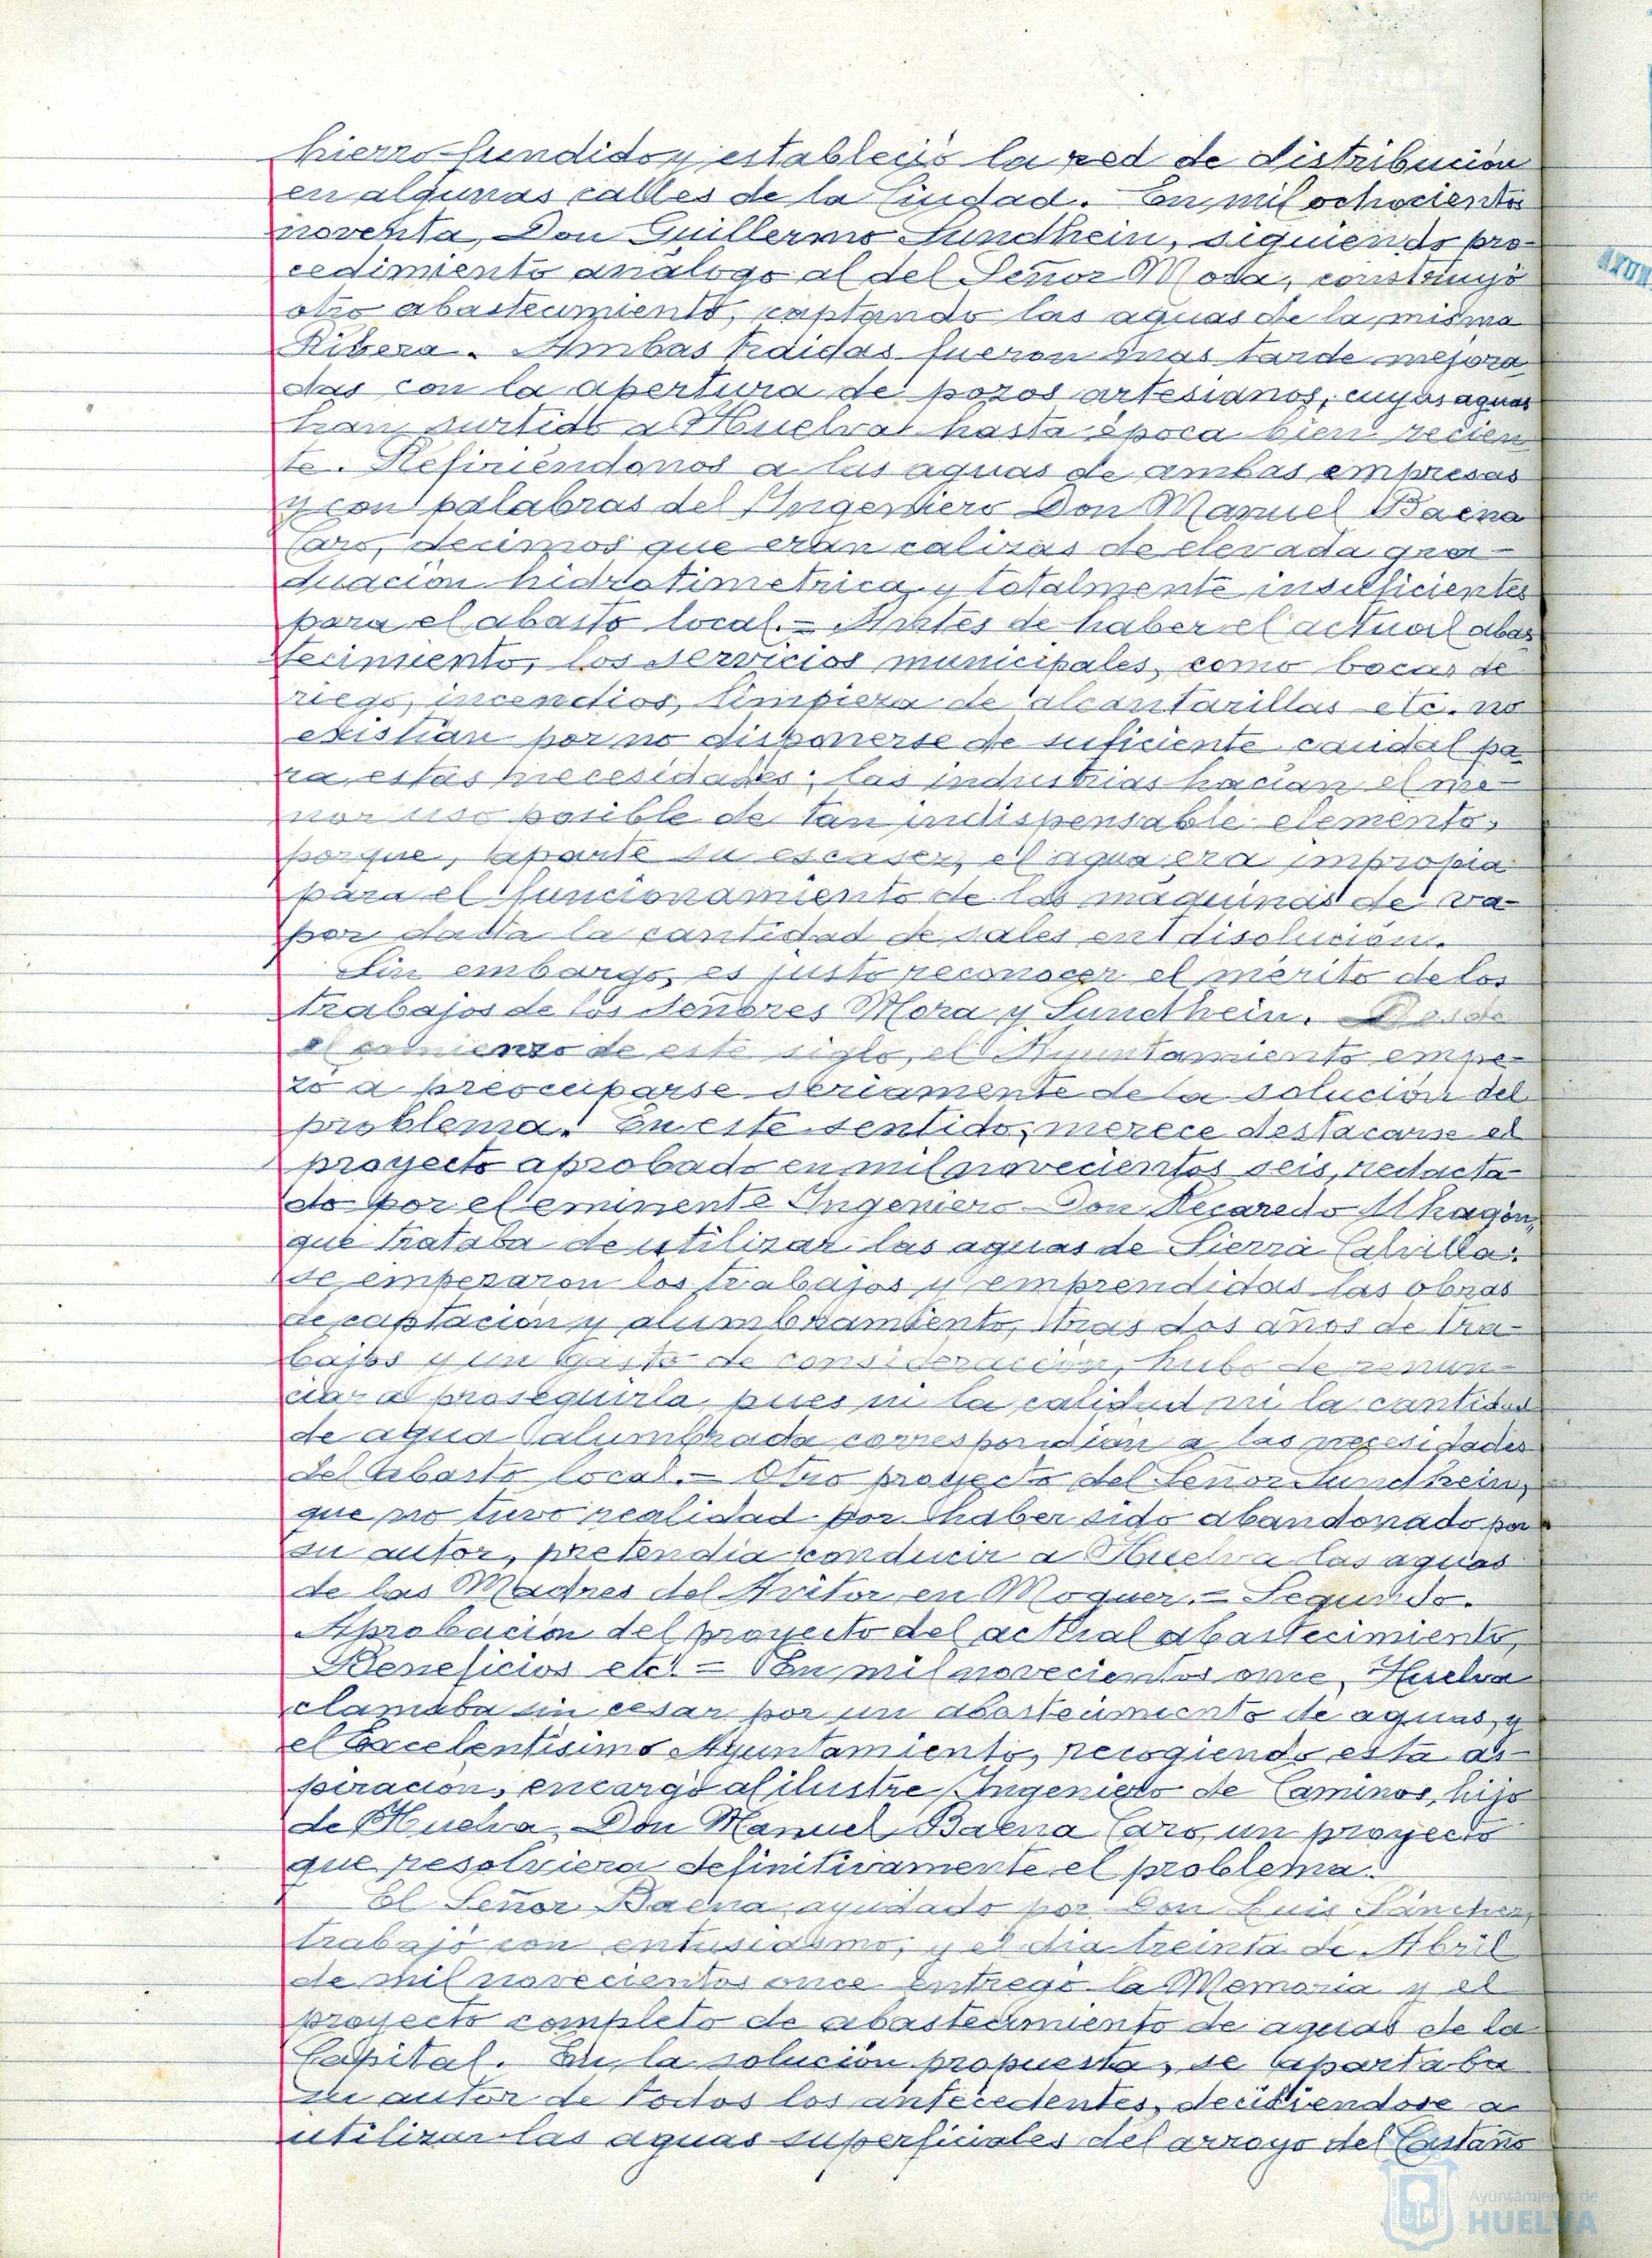 hierro fundido y estableció la red de distribución
en algunas calles de la Ciudad. En mil ochocientos
noventa, Don Guillermo Sundhein, siguiendo pro-
cedimiento análogo al del Señor Mora, construyó
otro abastecimiento, captando las aguas de la misma
Ribera. Ambas traidas fueron mas tarde mejora
das con la apertura de pozos artesianos, cuyas aguas
han surtido a Huelva hasta época bien recien
te. Refiriéndonos a las aguas de ambas empresas
y con palabras del Ingeniero Don Manuel Baena
Caro, decimos que eran calizas de elevada gra-
duación hidrotimetrica y totalmente insuficientes
para el abasto local.= Antes de haber el actual abas
tecimiento, los servicios municipales, como bocas de
riego, incendios, limpieza de alcantarillas etc. no
existían por no disponerse de suficiente caudal pa
ra estas necesidades; las industrias hacían el me-
nor uso posible de tan indispensable elemento,
porque, aparte su escasez, el agua era impropia
para el funcionamiento de las máquinas de va-
por dada la cantidad de sales en disolución.
Sin embargo, es justo reconocer el mérito de los
trabajos de los señores Mora y Sundhein. Desde
el comienzo de este siglo, el Ayuntamiento empe-
zó a preocuparse seriamente de la solución del
problema. En este sentido, merece destacarse el
proyecto aprobado en mil novecientos seis, redacta
do por el eminente Ingeniero Don Recaredo Uhagón,
que trataba de utilizar las aguas de Sierra Calvilla;
se empezaron los trabajos y emprendidas las obras
de captación y alumbramiento, tras dos años de tra-
bajos y un gasto de consideración, hubo de renun-
ciar a proseguirla, pues ni la calidad ni la cantidad
de agua alumbrada correspondían a las necesidades
del abasto local.= Otro proyecto del Señor Sundhein,
que no tuvo realidad por haber sido abandonado por
su autor, pretendía conducir a Huelva las aguas
de las Madres del Avitor en Moguer.= Segundo.
Aprobación del proyecto del actual abastecimiento,
Beneficios etc.= En mil novecientos once, Huelva
clamaba sin cesar por un abastecimiento de aguas, y
el Excelentísimo Ayuntamiento, recogiendo esta as-
piración, encargó al ilustre Ingeniero de Caminos, hijo
de Huelva, Don Manuel Baena Caro, un proyecto
que resolviera definitivamente el problema.
El Señor Baena, ayudado por Don Luis Sánchez,
trabajó con entusiasmo, y el día treinta de Abril
de mil novecientos once entregó la Memoria y el
proyecto completo de abastecimiento de aguas de la
Capital. En la solución propuesta, se apartaba
su autor de todos los antecedentes, decidiendose a
utilizar las aguas superficiales del arroyo del Castaño
Ayuntamiento de
HUELVA